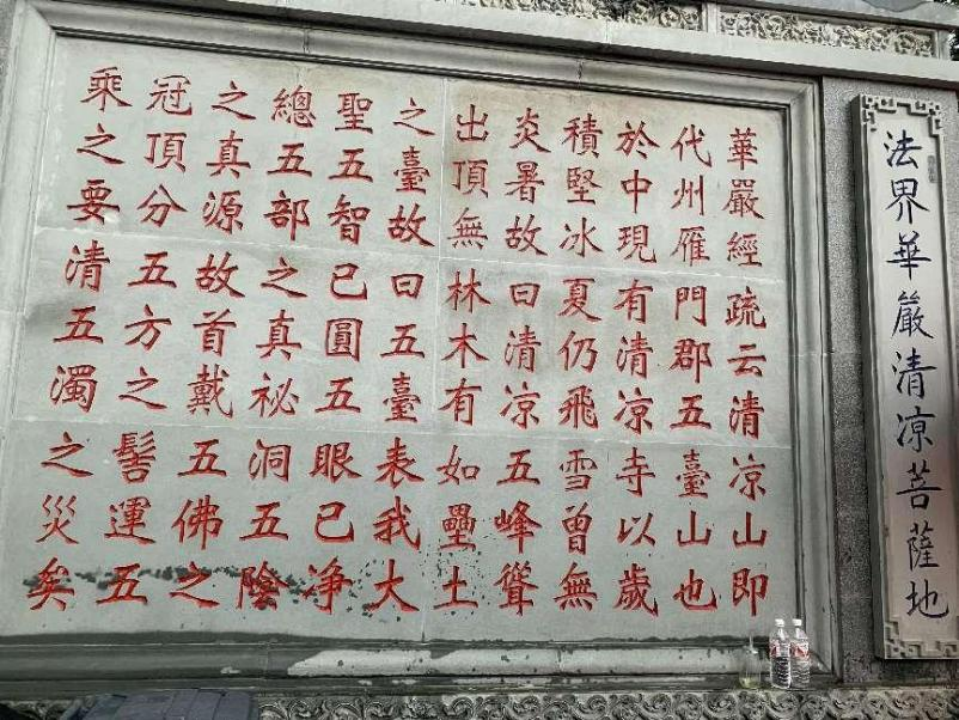 法界華嚴清凉菩薩地
華嚴經疏云清凉山即
代州雁門郡五臺山也
於中現有清凉寺以歲
積堅冰夏仍飛雪曾無
炎暑故曰清凉五峰聳
出頂無林木有如壘土
之臺故曰五臺表我大
聖五智已圓五眼已净
總五部之真祕洞五陰
之真源故首戴五佛之
冠頂分五方之髻運五
乘之要清五濁之災矣